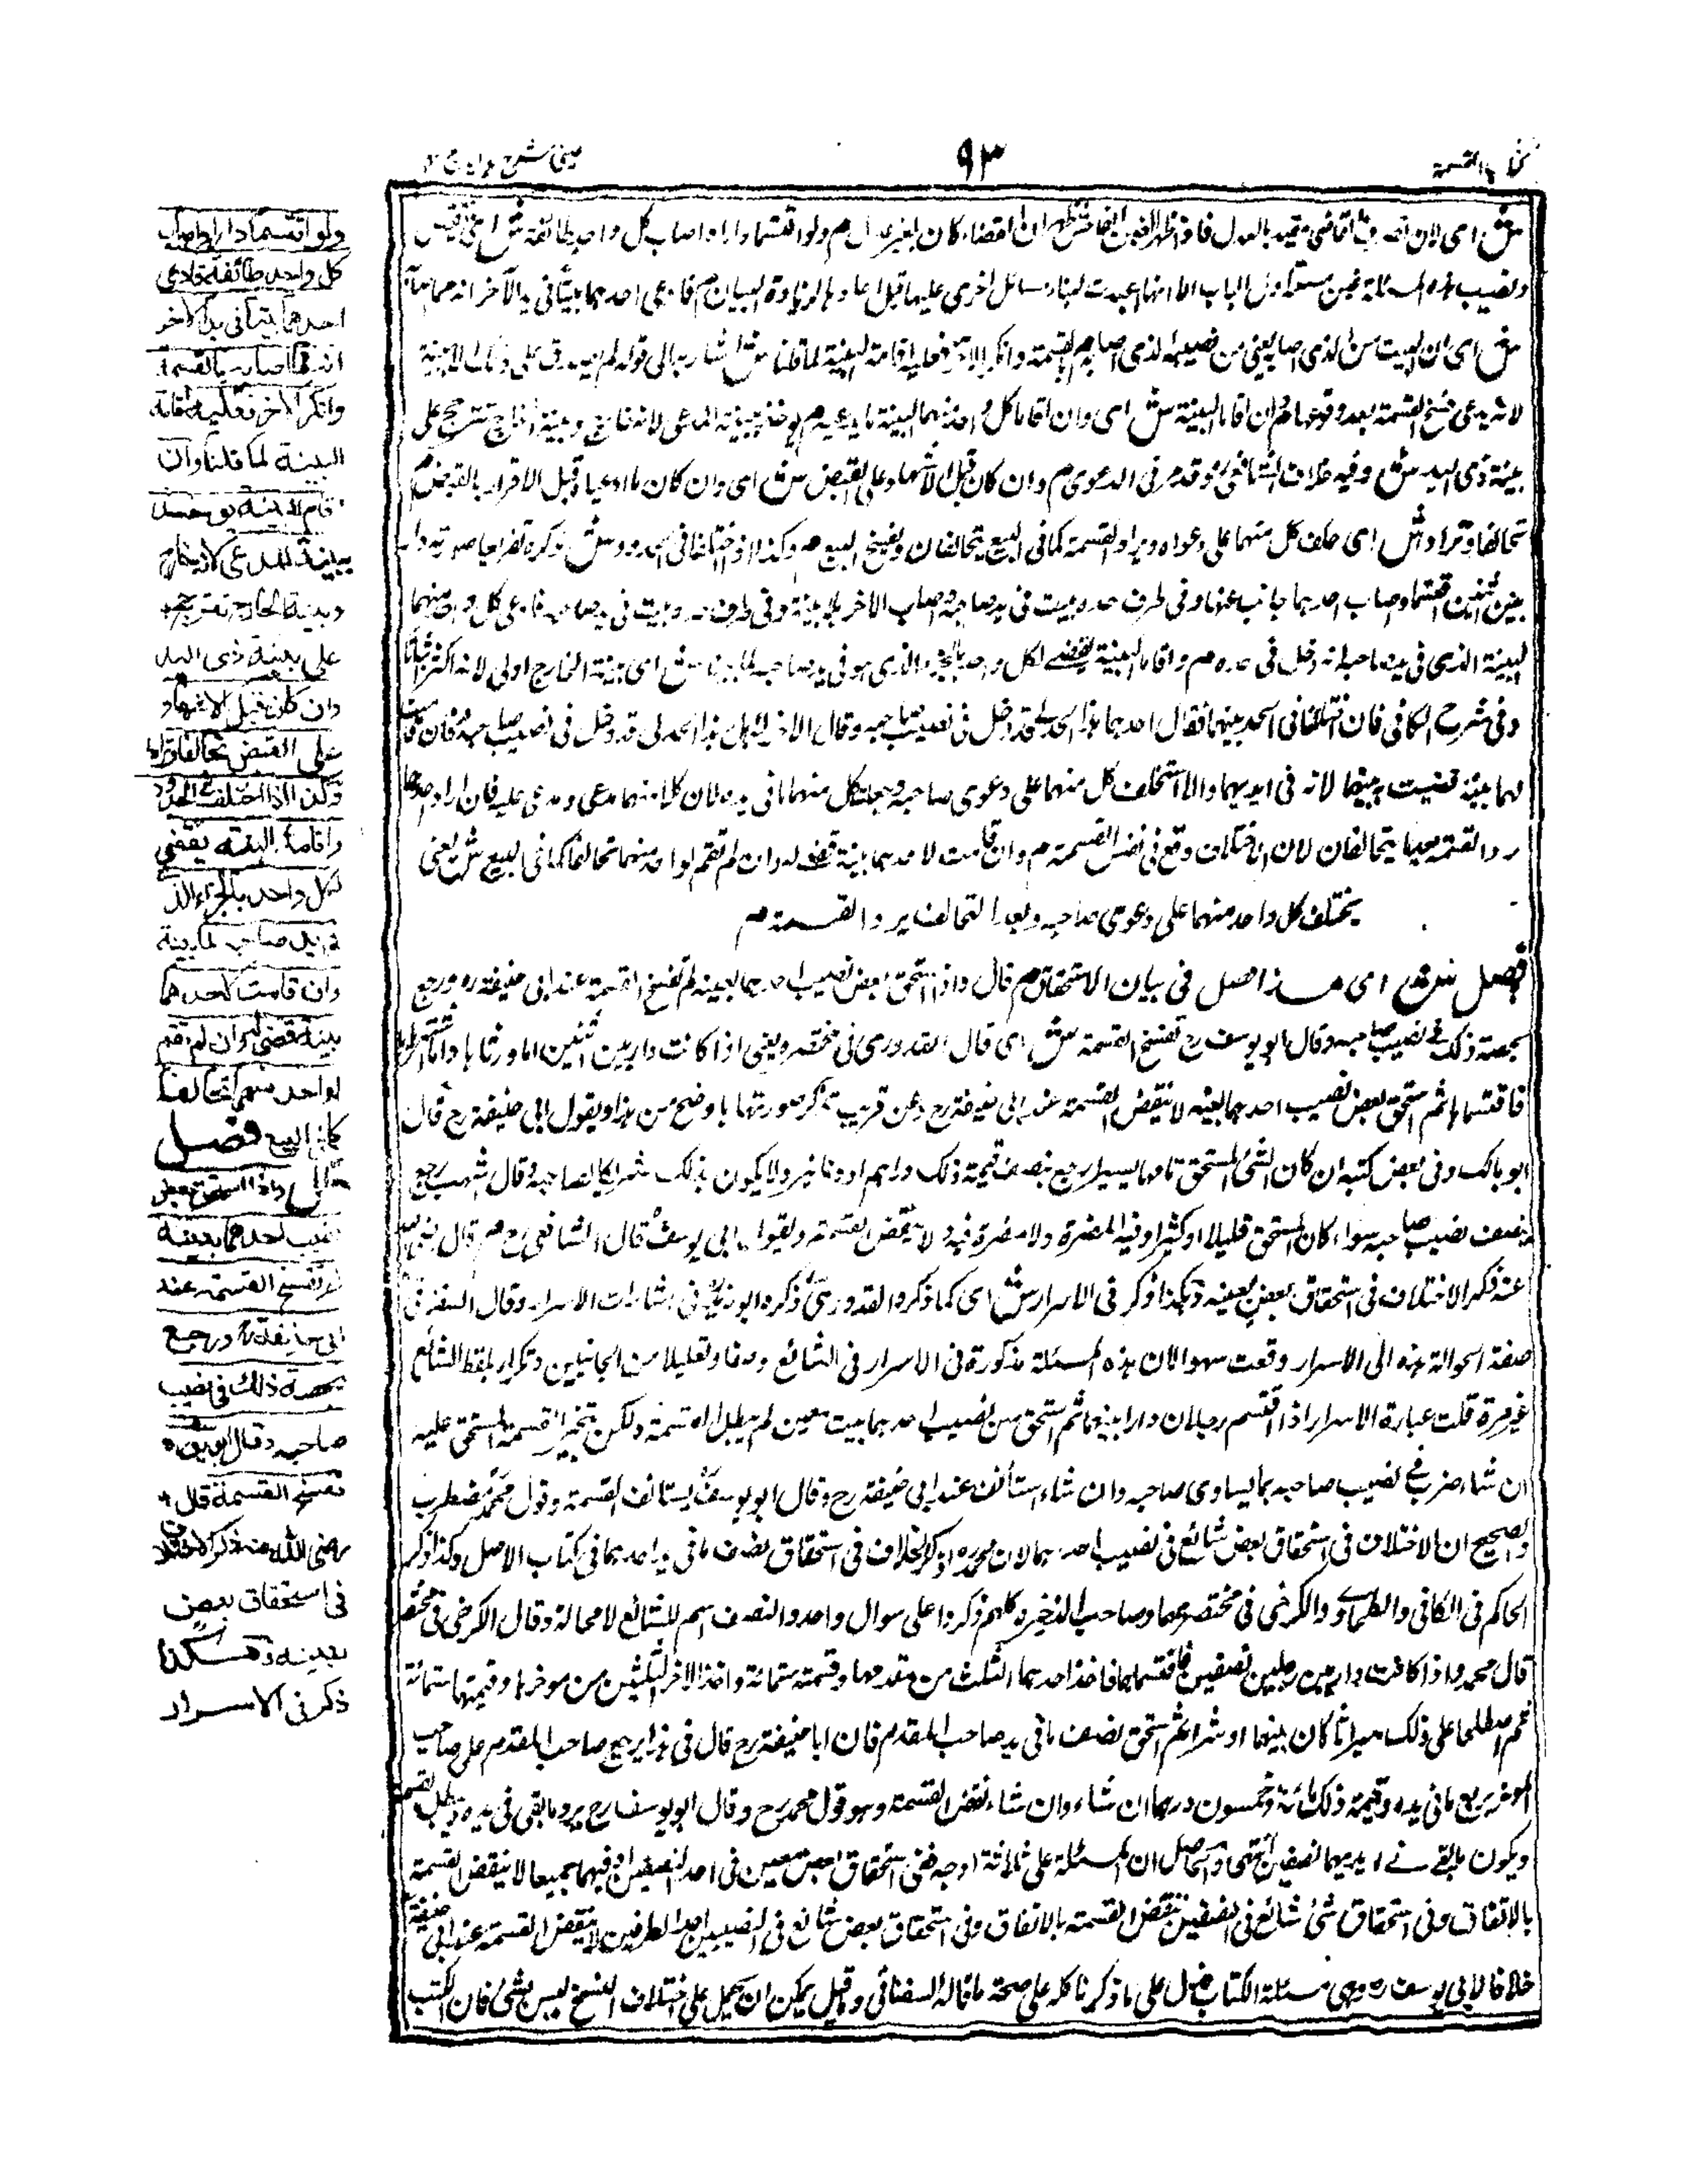 كتاب القسمة
٩٣
عينى شرح هداية ج ٣
ش اى لان تصرف القاضى مقيد بالعدل فاذا ظهر الغبن الفاحش ظهر ان القضاء كان بغير عدل م ولو اقتسما دارا واصاب كل واحد طائفة ش اى بعض
ونصيب هذه المسئلة اول الباب الا انها اعيدت لبناء مسائل اخرى عليها قبل اعادها لزيادة البيان م فادعى احدهما بيتا فى يد الآخر انه مما اصابه
ش اى ان البيت من الذى اصابه يعنى من نصيبه الذى اصابه م بالقسمة وانكر الاخر فعليه اقامة البينة لما قلنا ش اشار به الى قوله لم يصدق على ذلك الا ببينة
لانه يدعى فسخ القسمة بعد وقوعها م وان اقاما البينة ش اى وان اقاما كل واحد منهما البينة بما يدعيه م يوخذ ببينة المدعى لانه خارج وبينة الخارج تترجح على
بينة ذى اليد ش وفيه خلاف الشافعى وقد مر فى الدعوى م وان كان قبل الاشهاد على القبض ش اى وان كان ما ادعيا قبل الاقرار بالقبض م
تحالفا وترادا ش اى حلف كل منهما على دعواه ويراد القسمة كما فى البيع يتحالفان ويفسخ البيع م وكذا اذا اختلفا فى الحدود ش ذكره تفريعا صورته دار
بين اثنين اقتسما واصاب احدهما جانب عنها وفى طرف حده بيت فى يد صاحبه واصاب الاخر بلا بينة وفى طرف حده بيت فى يد صاحبه فادعى كل واحد منهما
البينة الذى فى يد صاحبه انه دخل فى حده م واقاما البينة يقضى لكل واحد بالجزء الذى هو فى يد صاحبه لما بينا ش اى بينة الخارج اولى لانه اكثر اثباتا
وفى شرح الكافى فان اختلفا فى الحد بينهما فقال احدهما هذا الحد لى قد دخل فى نصيب صاحبه وقال الاخر لا بل هذا الحد لى قد دخل فى نصيب صاحبه فان قامت
لهما بينة قضيت بينهما لانه فى ايديهما والا استحلف كل منهما على دعوى صاحبه وجعلت لكل منهما ما فى يده لان كلا منهما مدعى ومدعى عليه فان اراد احدهما
رد القسمة بعد ما يتحالفان لان الاختلاف وقع فى نفس القسمة م وان قامت لاحدهما بينة قضى له وان لم تقم لواحد منهما تحالفا كما فى البيع ش يعنى
يختلف كل واحد منهما على دعوى صاحبه وبعد التحالف يرد القسمة م
فصل ش اى هذا فصل فى بيان الاستحقاق م قال واذا استحق بعض نصيب احدهما بعينه لم تفسخ القسمة عند ابى حنيفة ره ورجع
بحصة ذلك فى نصيب صاحبه وقال ابو يوسف رح تفسخ القسمة ش اى قال القدورى فى مختصره يعنى اذا كانت دار بين اثنين اما ورثاها واما اشترياها
فاقتسماها ثم استحق بعض نصيب احدهما بعينه لا ينقض القسمة عند ابى حنيفة رح وعن قريب نذكر صورتها باوضح من هذا وبقول ابى حنيفة رح قال
ابو مالك وفى بعض كتبه ان كان الشئ المستحق تافها يسيرا رجع بنصف قيمة ذلك دراهم او دنانير ولا يكون بذلك شريكا لصاحبه وقال اشهب رجع
بنصف نصيب صاحبه سواء كان المستحق قليلا او كثيرا وفيه المضرة ولا مضرة فيه لا ينقض القسمة وبقول ابى يوسف قال الشافعى رح م قال رضى الله
عنه ذكر الاختلاف فى استحقاق بعض بعينه وهكذا ذكر فى الاسرار ش اى كما ذكره القدورى ذكره ابو زيد فى اشارات الاسرار وقال السغناقى
صفة الحوالة هذه الى الاسرار وقعت سهوا لان هذه المسئلة مذكورة فى الاسرار فى الشائع وضعا وتعليلا من الجانبين وتكرار لفظ الشائع
غير مرة قلت عبارة الاسرار اذا اقتسم رجلان دارا بينهما ثم استحق من نصيب احدهما بيت معين لم يبطل القسمة ولكن يتخير القسمة المستحق عليه
ان شاء ضرب فى نصيب صاحبه بما يساوى صاحبه وان شاء استأنف عند ابى حنيفة رح وقال ابو يوسف يستانف القسمة وقول محمد مضطرب
والصحيح ان الاختلاف فى استحقاق بعض شائع فى نصيب احدهما لان محمدا ره ذكر الخلاف فى استحقاق نصف ما فى يد احدهما فى كتاب الاصل وكذا ذكر
الحاكم فى الكافى والطحاوى والكرخى فى مختصرهما وصاحب الذخيرة كلهم ذكروا على سوال واحد والنصف اسم للشائع لا محالة وقال الكرخى فى مختصره
قال محمد واذا كانت دار بين رجلين نصفين فاقتسماها فاخذ احدهما الثلث من مقدمها وقيمته ستمائة واخذ الاخر الثلثين من موخرها وقيمتها ستمائة
ثم اصطلحا على ذلك ميراثا كان بينهما او شراء ثم استحق نصف ما فى يد صاحب المقدم فان ابا حنيفة رح قال فى هذا يرجع صاحب المقدم على صاحب
الموخر بربع ما فى يده وقيمة ذلك مائة وخمسون درهما ان شاء وان شاء نقض القسمة وهو قول محمد رح وقال ابو يوسف رح يرد ما بقى فى يده ويبطل القسمة
ويكون ما بقى فى ايديهما نصفين انتهى والحاصل ان المسئلة على ثلاثة اوجه ففى استحقاق بعض معين فى احد النصيبين او فيهما جميعا لا ينقض القسمة
بالاتفاق وفى استحقاق شئ شائع فى النصفين ينقض القسمة بالاتفاق وفى استحقاق بعض شائع فى النصيبين احد الطرفين لا ينقض القسمة عند ابى حنيفة
خلافا لابى يوسف ره وهى مسئلة الكتاب فدل على ما ذكرنا كله على صحة ما قاله السغناقى وقيل يمكن ان يحمل على اختلاف النسخ ليس بشئ فان الكتب
ولو اقتسما دارا واصاب
كل واحد طائفة فادعى
احدهما بيتا فى يد الاخر
انه مما اصابه بالقسمة
وانكر الاخر فعليه اقامة
البينة لما قلنا وان
اقاما البينة يوخذ
ببينة المدعى لانه خارج
وبينة الخارج تترجح
على بينة ذى اليد
وان كان قبل الاشهاد
على القبض تحالفا وترادا
وكذا اذا اختلفا فى الحدود
واقاما البينة يقضى
لكل واحد بالجزء الذى
فى يد صاحبه لما بينا
وان قامت لاحدهما
بينة قضى له وان لم تقم
لواحد منهما تحالفا
كما فى البيع فصل
قال واذا استحق بعض
نصيب احدهما بعينه
لم تفسخ القسمة عند
ابى حنيفة ره ورجع
بحصة ذلك فى نصيب
صاحبه وقال ابو يوسف
تفسخ القسمة قال
رضى الله عنه ذكر الاختلاف
فى استحقاق بعض
بعينه وهكذا
ذكر فى الاسرار